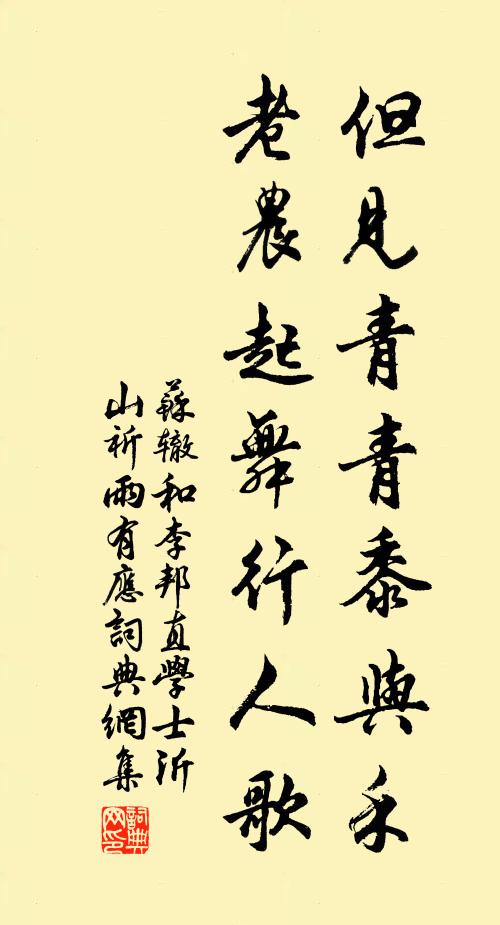 但見青青黍與禾
老農起舞行人歌
蘇辙和李邦直學士沂
山祈雨有應詞典網集
詞典
网印